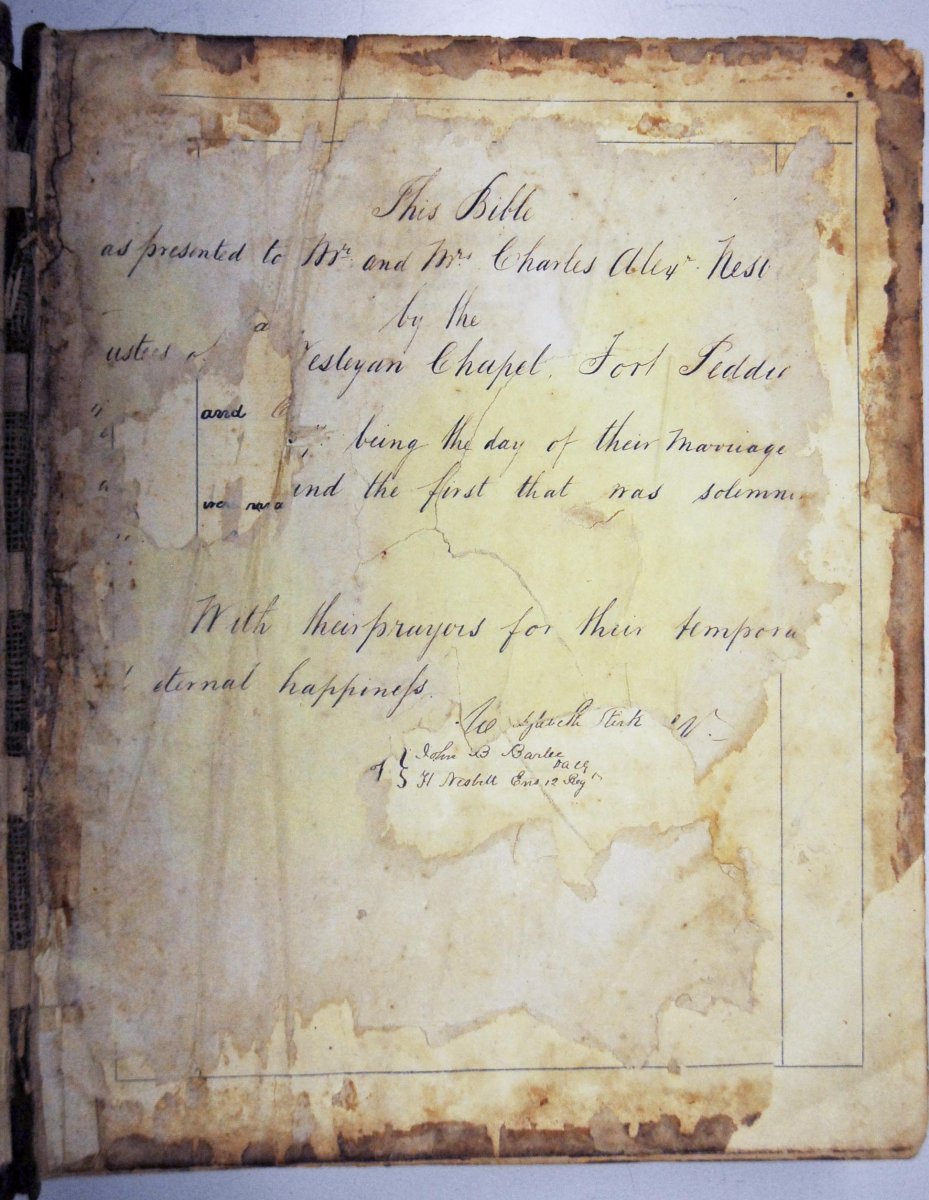 This Bible
as presented to Mr. and Mrs. Charles Alexr. Nesb
by the
ustees o Wesleyan Chapel. Fort Peddie
and
being the day of their Marriage
and the first that was solemni
With their prayers for their tempora
eternal happiness.
Sterk
John B Barlee
H Nesbitt Ens 12 Regt